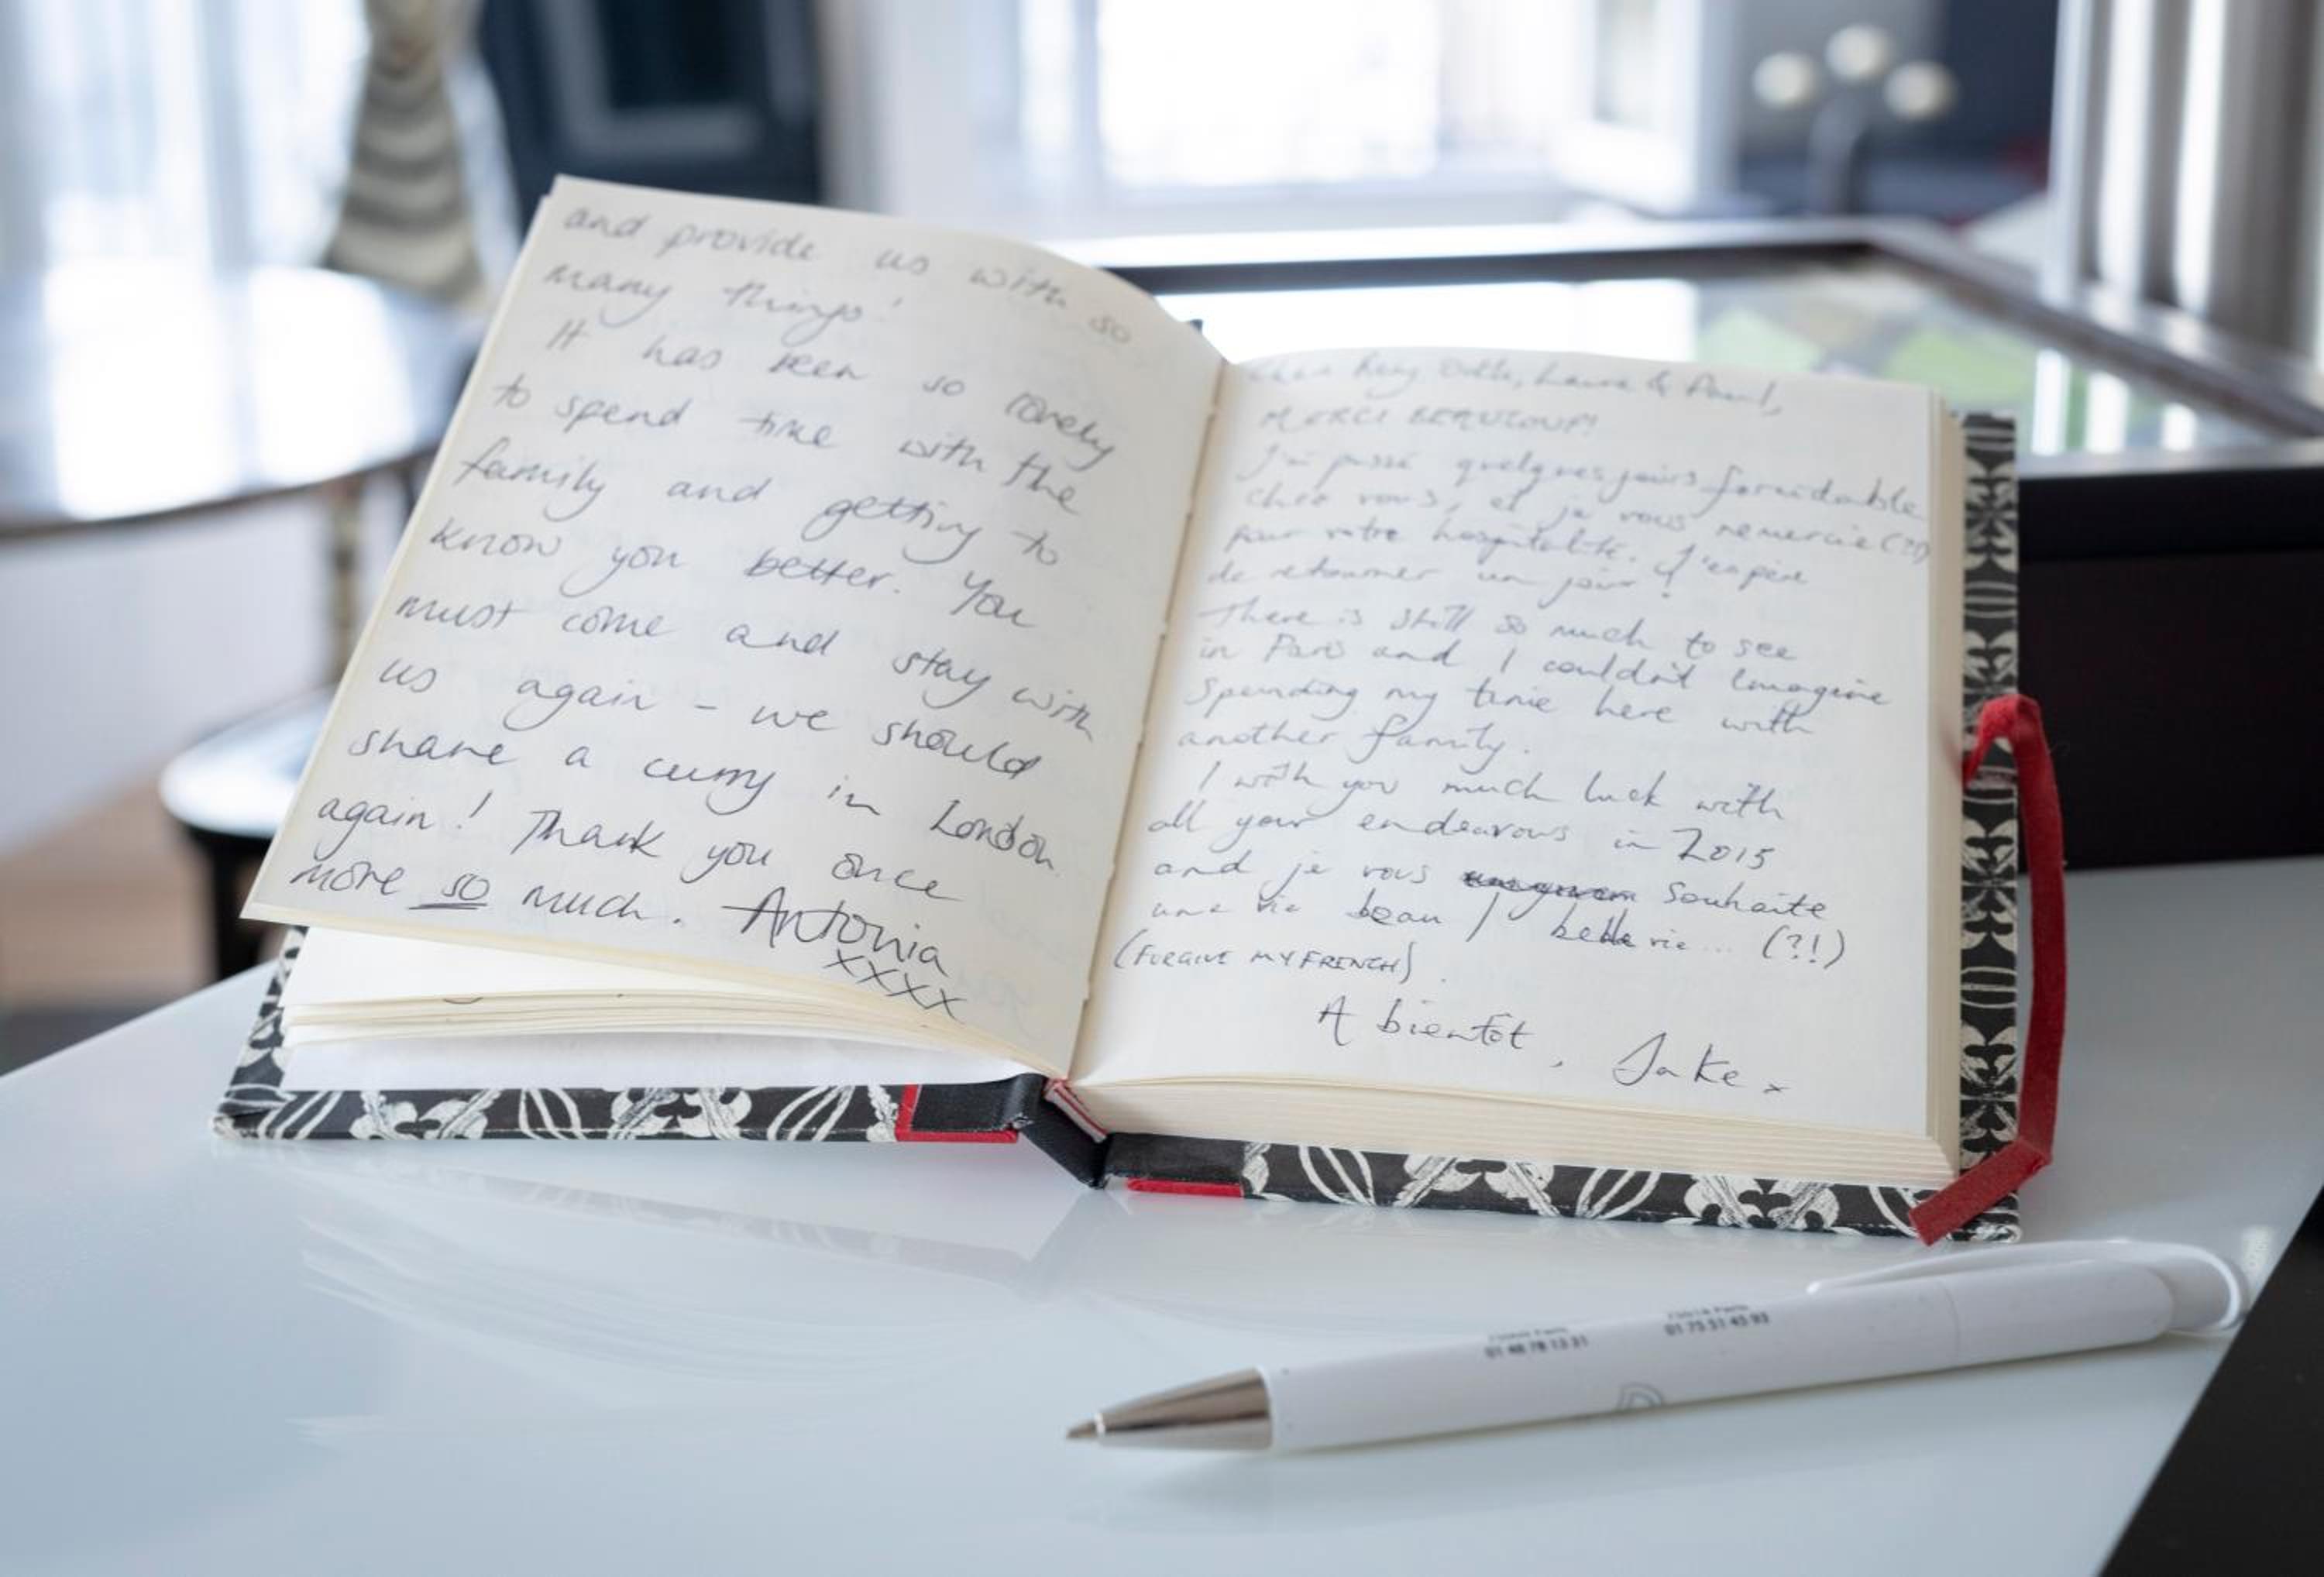 and provide us with so
many things!
It has been so lovely
to spend time with the
family and getting to
know you better. You
must come and stay with
us again - we should
share a curry in London
again! Thank you once
more so much. Antonia
xxxx
Laura & Paul,
MERCI BEAUCOUP!
J'ai passé quelques jours formidable
chez vous, et je vous remercie (?!)
pour votre hospitalité. J'espère
de retourner un jour!
There is still so much to see
in Paris and I couldn't imagine
spending my time here with
another family.
I wish you much luck with
all your endeavours in 2015
and je vous souhaite
une vie beau / belle vie ... (?!)
(FORGIVE MY FRENCH)
A bientôt, Jake x